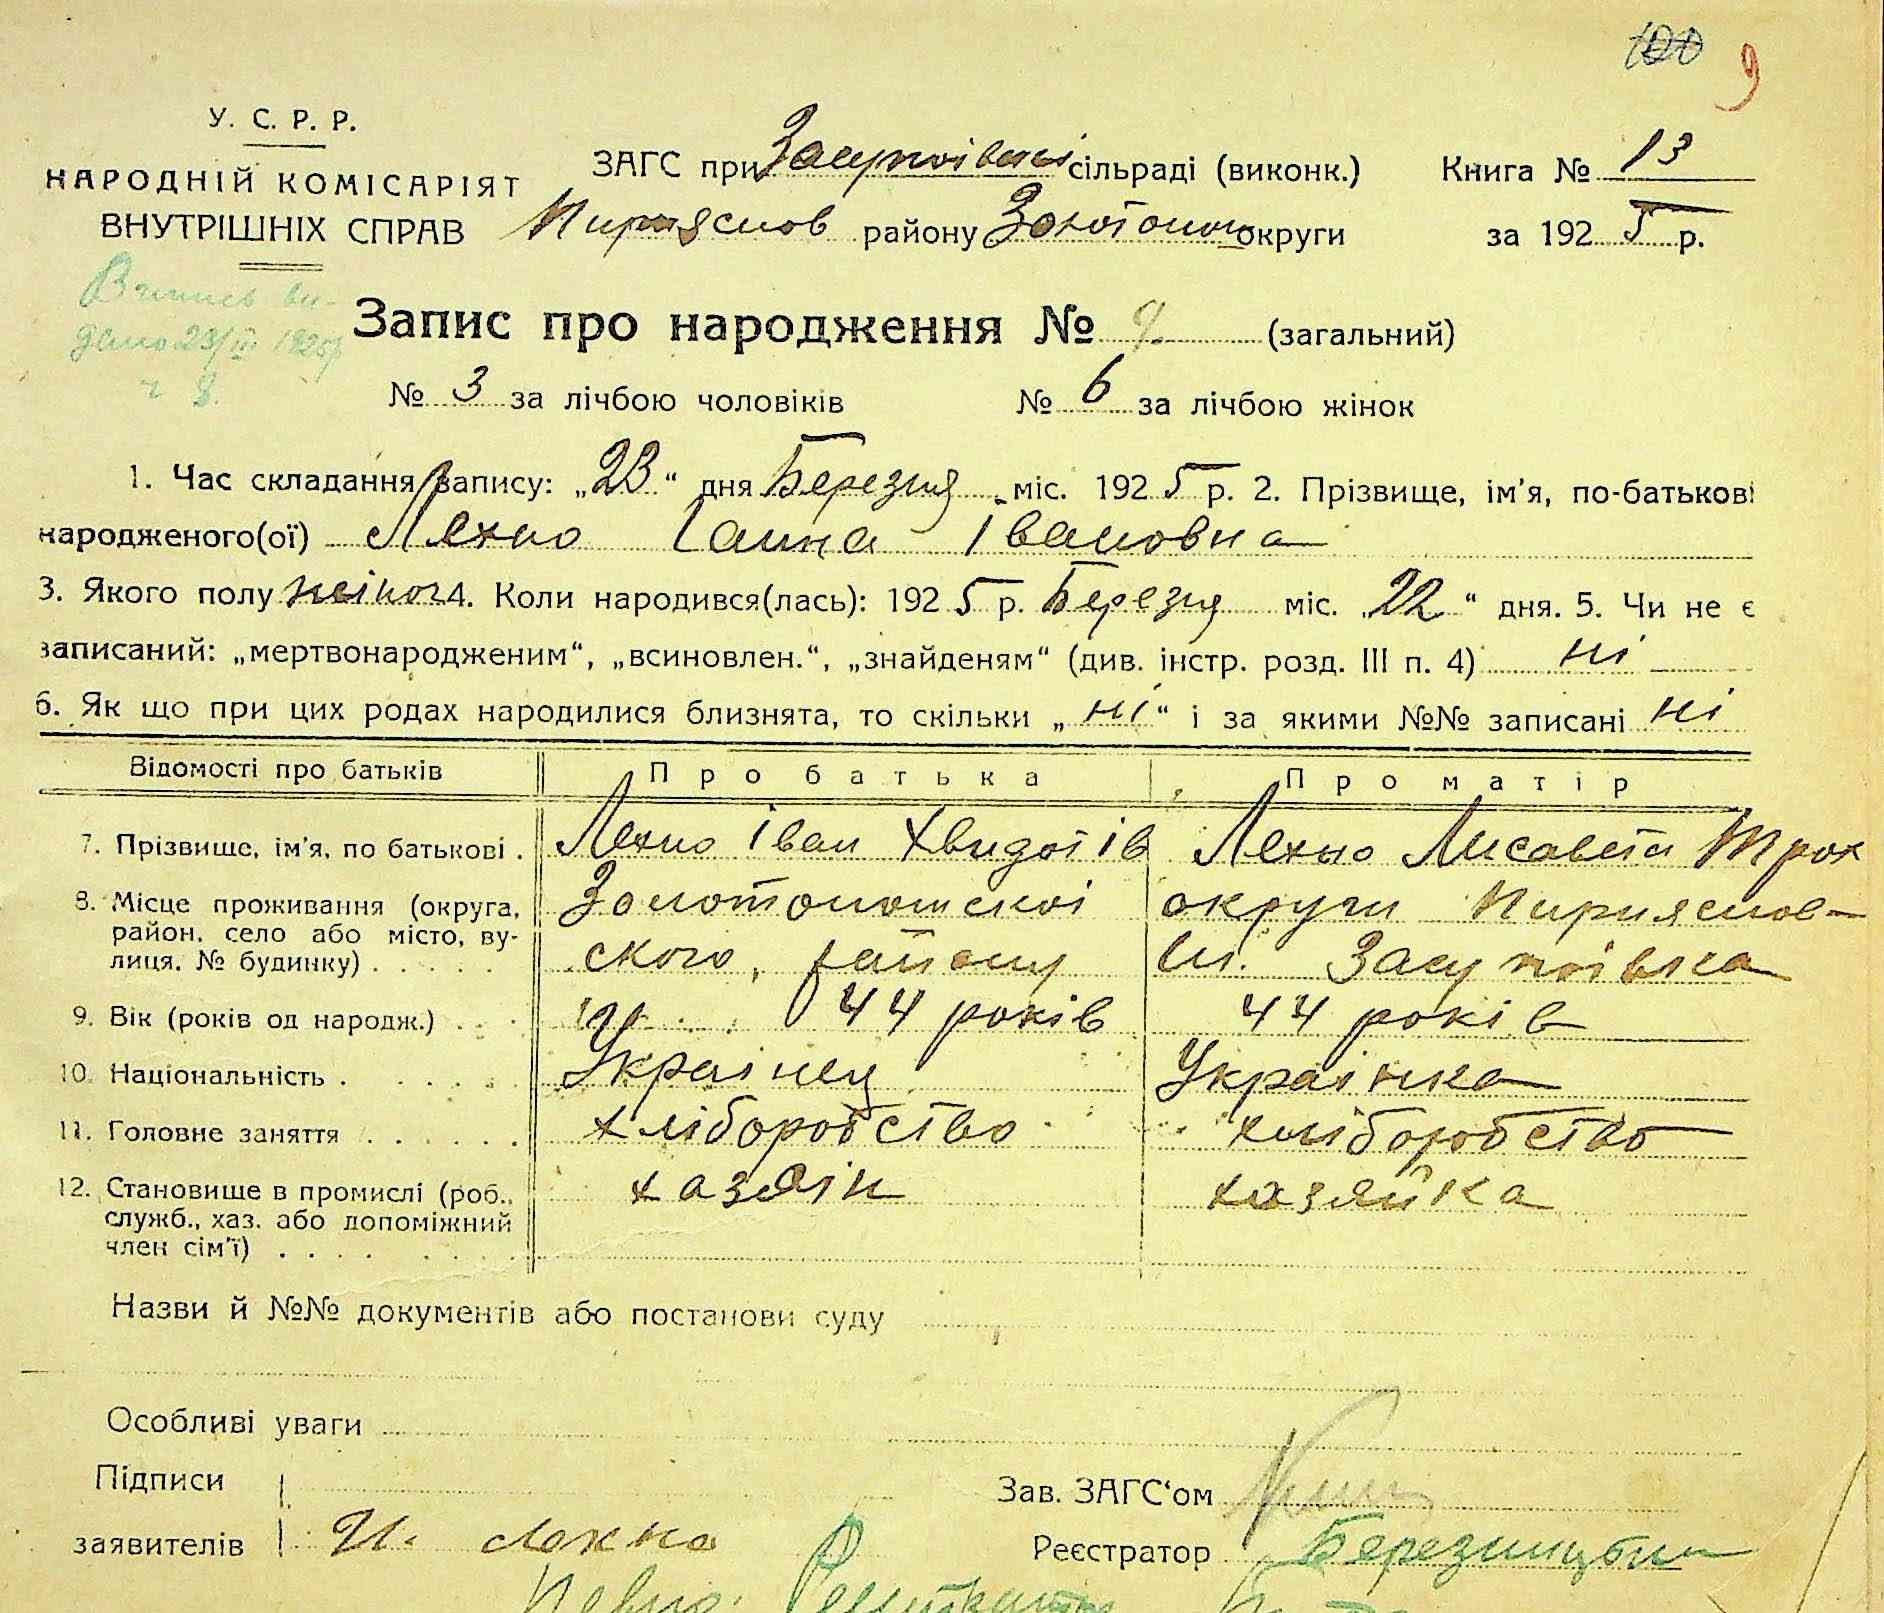 100 9
У. С. Р. Р.
НАРОДНІЙ КОМІСАРІЯТ
ВНУТРІШНІХ СПРАВ
ЗАГС при Засупоївкі сільраді (виконк.)
Пирияслов району Золотонош округи
Книга № 13
за 1925 р.
Випись ви-
дано 23/III 1925р
ч 8.
Запис про народження № 9. (загальний)
№ 3 за лічбою чоловіків № 6 за лічбою жінок
1. Час складання запису: „23“ дня Березня міс. 1925 р. 2. Прізвище, ім’я, по-батькові
народженого(ої) Лехно Ганна Івановна
3. Якого полу жіноч 4. Коли народився(лась): 1925 р. Березня міс. „22“ дня. 5. Чи не є
записаний: „мертвонародженим“, „всиновлен.“, „знайденям“ (див. інстр. розд. III п. 4) ні
6. Як що при цих родах народилися близнята, то скільки „ні“ і за якими №№ записані ні
Відомості про батьків Про батька Про матір
7. Прізвище, ім’я, по батькові . Лехно Іван Хвидотів Лехно Лисавета Трох
8. Місце проживання (округа, район, село або місто, ву-лиця, № будинку) . . . . . Золотоношскоі округи Пирияслов-
ского, району Засупоівка
9. Вік (років од народж.) . . . 44 років 44 років
10. Національність . . . . . Украінец Украінка
11. Головне заняття . . . . . . хліборобство хліборобство
12. Становище в промислі (роб., служб., хаз. або допоміжний член сім’ї) . . . . . . . хазяін хазяйка
Назви й №№ документів або постанови суду
Особливі уваги
Підписи
заявителів И. Лехно
Зав. ЗАГС‘ом
Реєстратор